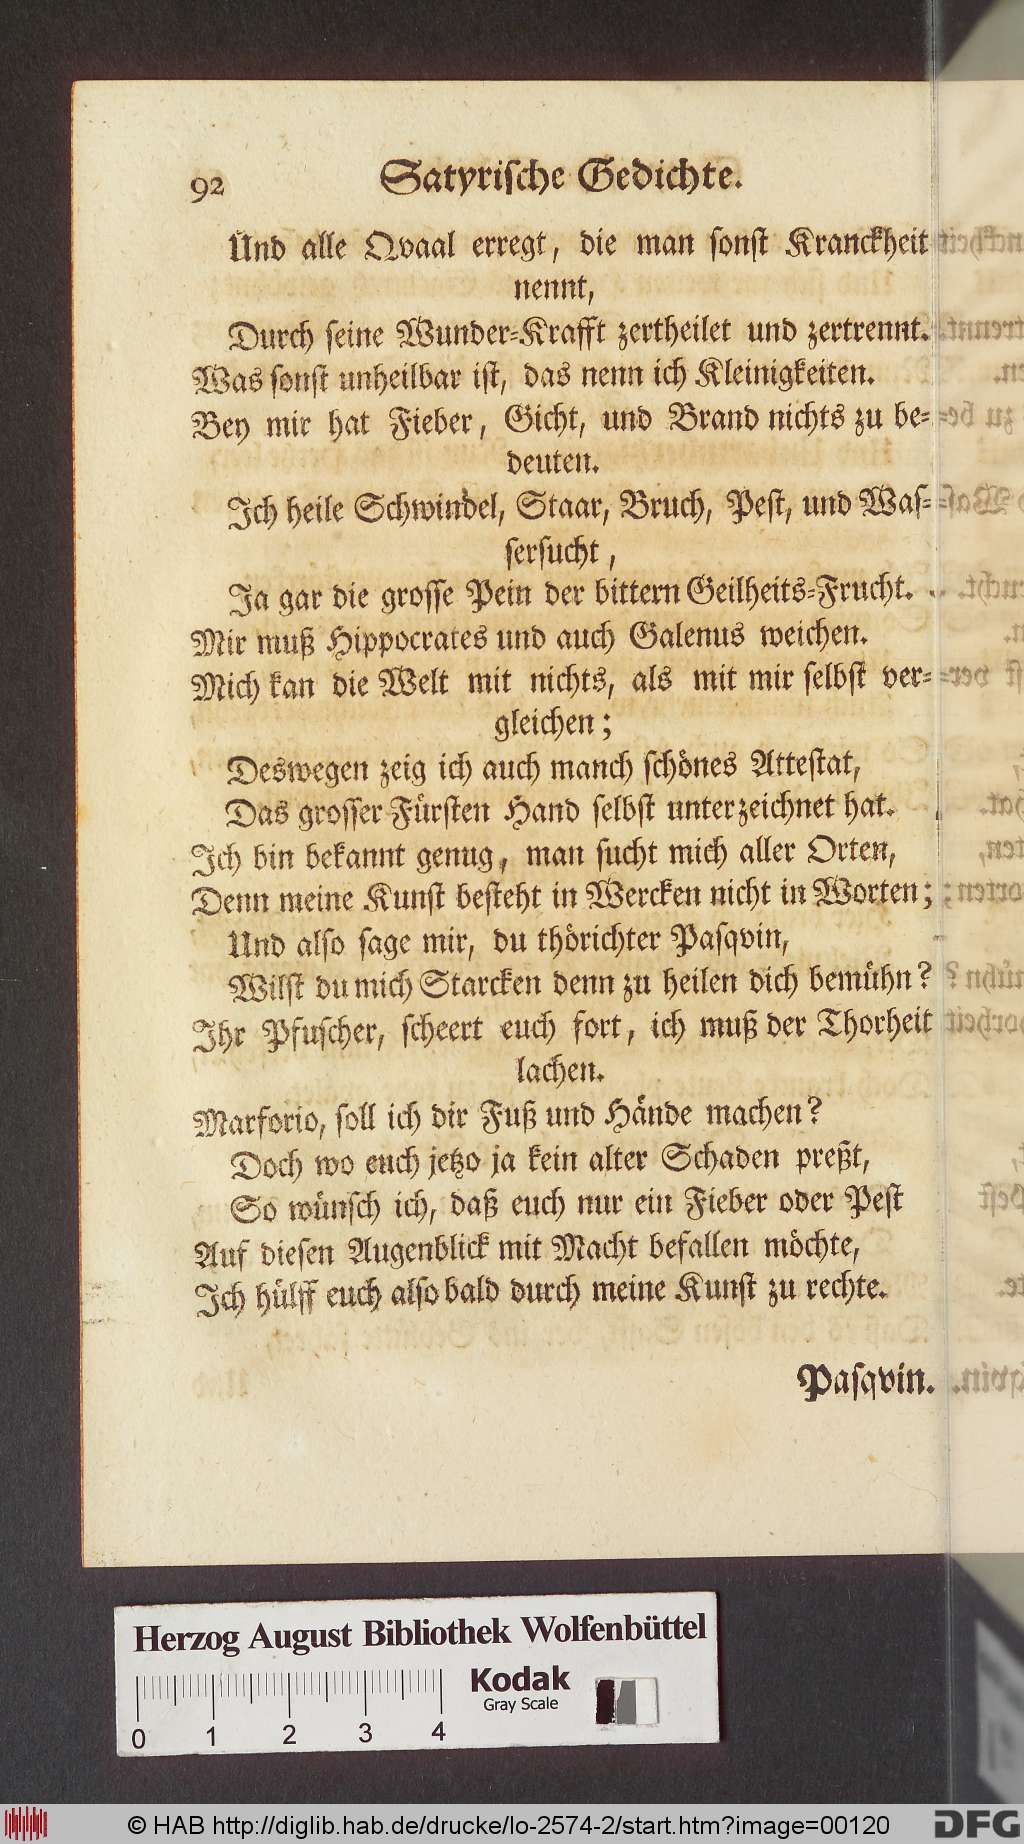 92 Satyrische Gedichte.
Und alle Qvaal erregt, die man sonst Kranckheit
nennt,
Durch seine Wunder-Krafft zertheilet und zertrennt.
Was sonst unheilbar ist, das nenn ich Kleinigkeiten.
Bey mir hat Fieber, Gicht, und Brand nichts zu be-
deuten.
Ich heile Schwindel, Staar, Bruch, Pest, und Was-
sersucht,
Ja gar die grosse Pein der bittern Geilheits-Frucht.
Mir muß Hippocrates und auch Galenus weichen.
Mich kan die Welt mit nichts, als mit mir selbst ver-
gleichen;
Deswegen zeig ich auch manch schönes Attestat,
Das grosser Fürsten Hand selbst unterzeichnet hat.
Ich bin bekannt genug, man sucht mich aller Orten,
Denn meine Kunst besteht in Wercken nicht in Worten;
Und also sage mir, du thörichter Pasqvin,
Wilst du mich Starcken denn zu heilen dich bemühn?
Ihr Pfuscher, scheert euch fort, ich muß der Thorheit
lachen.
Marforio, soll ich dir Fuß und Hände machen?
Doch wo euch jetzo ja kein alter Schaden preßt,
So wünsch ich, daß euch nur ein Fieber oder Pest
Auf diesen Augenblick mit Macht befallen möchte,
Ich hülff euch also bald durch meine Kunst zu rechte.
Pasqvin.
Herzog August Bibliothek Wolfenbüttel
0 1 2 3 4
Kodak
Gray Scale
© HAB http://diglib.hab.de/drucke/lo-2574-2/start.htm?image=00120
DFG